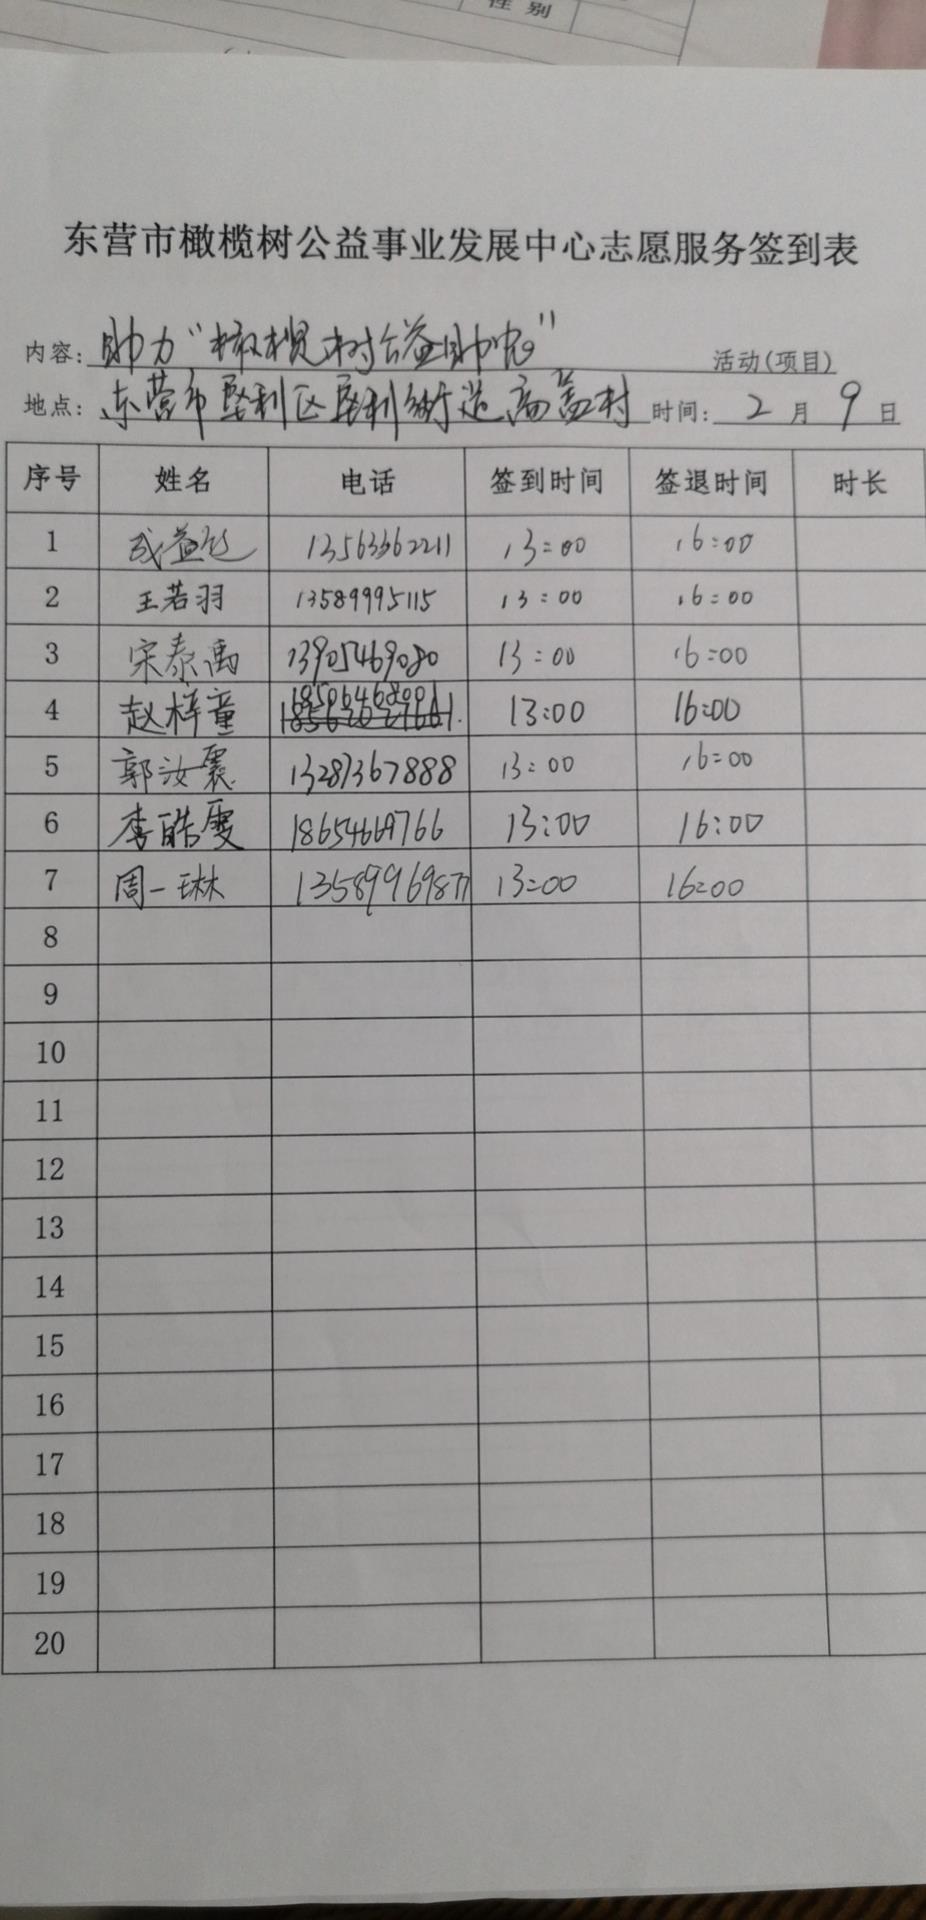 性 别
东营市橄榄树公益事业发展中心志愿服务签到表
内容: 助力“橄榄树公益助农” 活动(项目)
地点: 东营市垦利区垦利街道高盖村 时间: 2 月 9 日
序号 姓名 电话 签到时间 签退时间 时长
1 13563362211 13:00 16:00
2 王若羽 13589995115 13:00 16:00
3 宋泰禹 13905469080 13:00 16:00
4 赵梓童 13:00 16:00
5 郭汝震 13287367888 13:00 16:00
6 李皓雯 18654669766 13:00 16:00
7 周一琳 13589969877 13:00 16:00
8
9
10
11
12
13
14
15
16
17
18
19
20